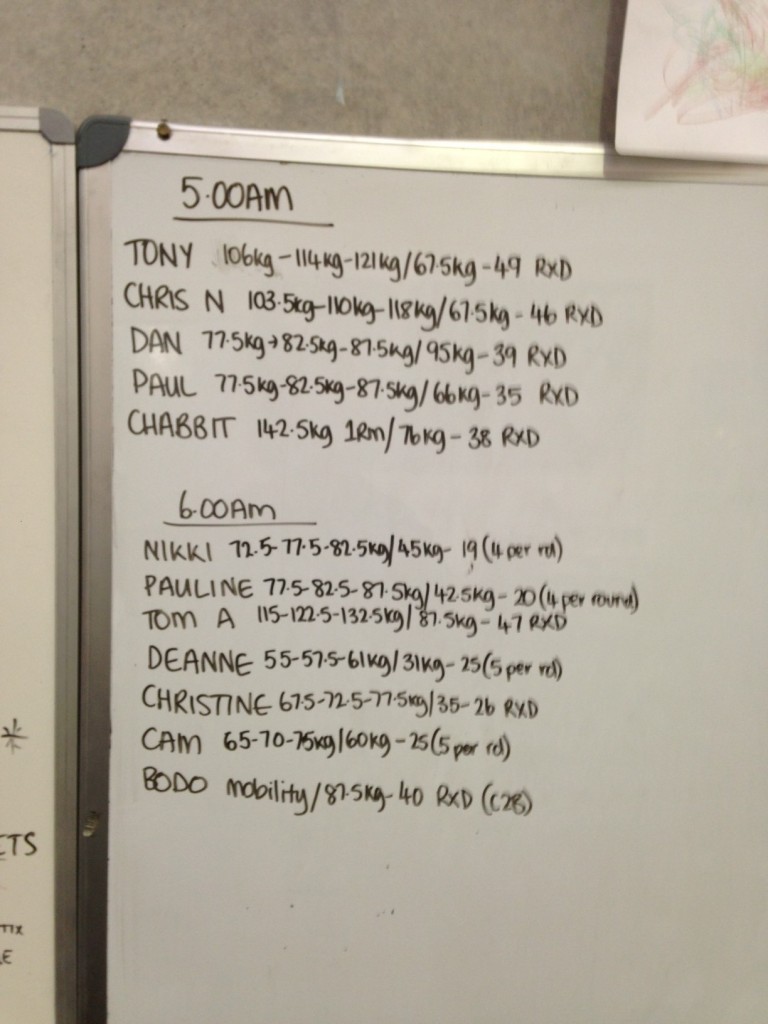 5.00AM
TONY 106kg-114kg-121kg/67.5kg-49 RXD
CHRIS N 103.5kg-110kg-118kg/67.5kg-46 RXD
DAN 77.5kg→82.5kg-87.5kg/95kg-39 RXD
PAUL 77.5kg-82.5kg-87.5kg/66kg-35 RXD
CHABBIT 142.5kg 1Rm/76kg-38 RXD
6.00AM
NIKKI 72.5-77.5-82.5kg/45kg-19(4 per rd)
PAULINE 77.5-82.5-87.5kg/42.5kg-20(4 per round)
TOM A 115-122.5-132.5kg/87.5kg-47 RXD
DEANNE 55-57.5-61kg/31kg-25(5 per rd)
CHRISTINE 67.5-72.5-77.5kg/35-26 RXD
CAM 65-70-75kg/60kg-25(5 per rd)
BODO mobility/87.5kg-40 RXD (C28)